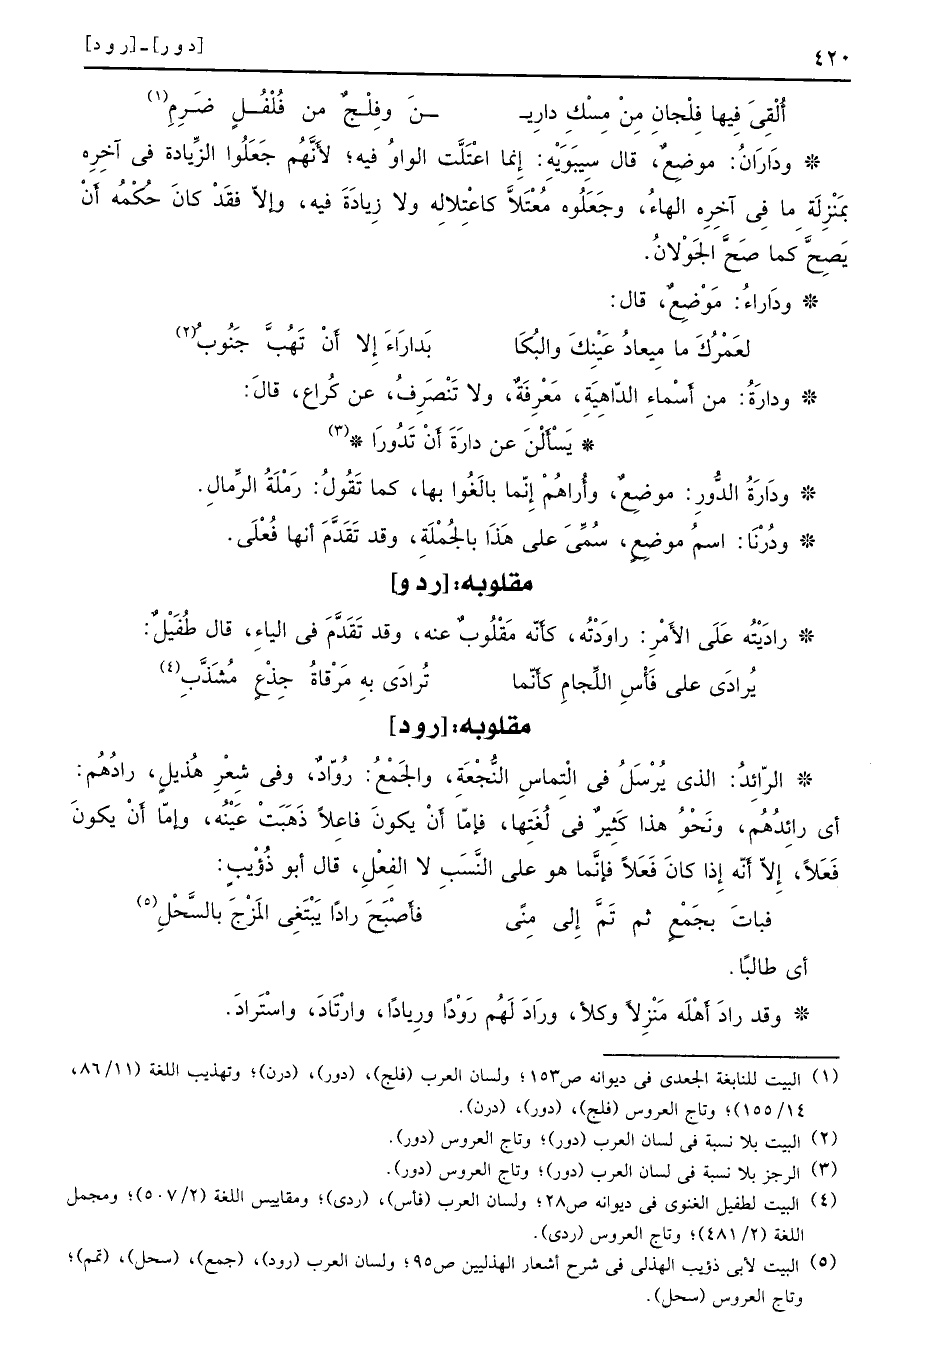 ٤٢٠
[دور] ـ [رود]
أُلْقِىَ فِيها فِلْجانِ مِنْ مِسْكِ داريـ ـنَ وفِلْجٌ من فُلْفُـلٍ ضَـرِمِ(١)
* ودَارَانُ: موضعٌ، قال سِيبَوَيْهِ: إنما اعْتَلَّت الواوُ فيه؛ لأنَّهُم جَعَلُوا الزِّيادة فى آخِرِه
بمَنْزِلَةِ ما فى آخرِه الهاءُ، وجَعَلُوه مُعْتَلاَّ كاعْتِلالِه ولا زِيادَةَ فيه، وإلاّ فقَدْ كانَ حُكْمُه أنْ
يَصِحَّ كما صَحَّ الجَوْلانُ.
* ودَاراءُ: مَوْضِعٌ، قال:
لعَمْرُكَ ما مِيعادُ عَيْنِكَ والبُكَا بَدارَاءَ إلا أنْ تَهُبَّ جَنُوبُ(٢)
* ودارَةُ: من أَسْماءِ الدّاهِيَة، مَعْرِفَةٌ، ولا تَنْصَرِفُ، عن كُراع، قالَ:
* يَسْأَلْنَ عن دارَةَ أنْ تَدُورَا *(٣)
* ودَارَةُ الدُّورِ: موضعٌ، وأُراهُمْ إنّما بالَغُوا بها، كما تَقُولُ: رَمْلَةُ الرِّمالِ.
* ودُرْنَا: اسمُ موضعٍ، سُمِّىَ على هَذَا بالجُمْلَةِ، وقد تَقَدَّمَ أنها فُعْلَى.
مقلوبه: [ر د و]
* رادَيْتُه عَلَى الأَمْرِ: راوَدْتُه، كأنّه مَقْلُوبٌ عنه، وقد تَقَدَّمَ فى الياءِ، قال طُفَيْلٌ:
يُرادَى على فَأْسِ اللِّجامِ كأنّما تُرادَى به مَرْقاةُ جِذْعٍ مُشَذَّبِ(٤)
مقلوبه: [ر و د]
* الرّائدُ: الذى يُرْسَلُ فى الْتِماسِ النُّجْعَةِ، والجَمْعُ: رُوّادٌ، وفى شِعْرِ هُذيلٍ، رادُهُم:
أى رائدُهُم، ونَحْوُ هذا كَثِيرٌ فى لُغَتِها، فإمّا أن يكونَ فاعِلاً ذَهَبَتْ عَيْنُه، وإمّا أنْ يكونَ
فَعَلاً، إلاّ أنّه إذا كانَ فَعَلاً فإنَّما هو على النَّسَبِ لا الفِعْلِ، قال أبو ذُؤَيْبٍ:
فباتَ بجَمْعٍ ثم تَمَّ إلى مِنًى فأصْبَحَ رادًا يَبْتَغِى المَزْجَ بالسَّحْلِ(٥)
أى طالبًا.
* وقد رادَ أهْلَه مَنْزِلاً وكلأ، ورَادَ لَهُم رَوْدًا ورِيادًا، وارْتَادَ، واسْتَرادَ.
(١) البيت للنابغة الجعدى فى ديوانه ص١٥٣؛ ولسان العرب (فلج)، (دور)، (درن)؛ وتهذيب اللغة (١١/ ٨٦،
١٤/ ١٥٥)؛ وتاج العروس (فلج)، (دور)، (درن).
(٢) البيت بلا نسبة فى لسان العرب (دور)؛ وتاج العروس (دور).
(٣) الرجز بلا نسبة فى لسان العرب (دور)؛ وتاج العروس (دور).
(٤) البيت لطفيل الغنوى فى ديوانه ص٢٨؛ ولسان العرب (فأس)، (ردى)؛ ومقاييس اللغة (٢/ ٥٠٧)؛ ومجمل
اللغة (٢/ ٤٨١)؛ وتاج العروس (ردى).
(٥) البيت لأبى ذؤيب الهذلى فى شرح أشعار الهذليين ص٩٥؛ ولسان العرب (رود)، (جمع)، (سحل)، (تمم)؛
وتاج العروس (سحل).